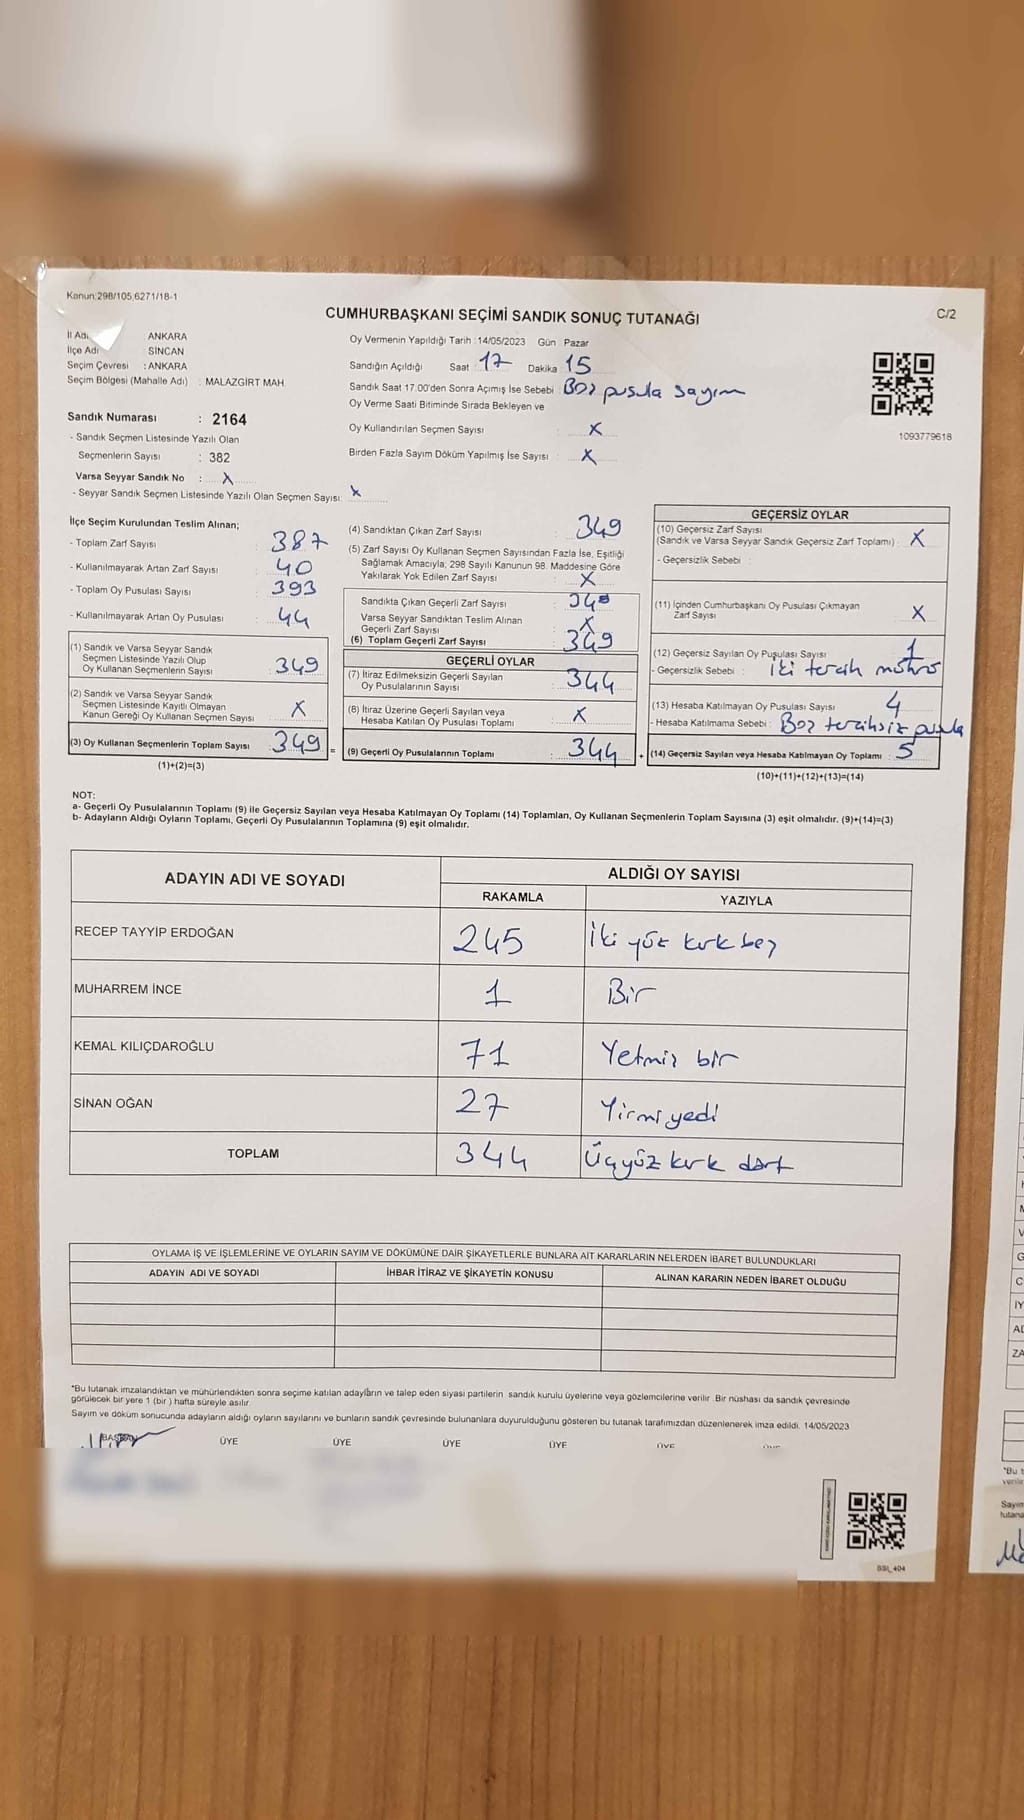 Kanun:298/105,6271/18-1
C/2
CUMHURBAŞKANI SEÇİMİ SANDIK SONUÇ TUTANAĞI
İl Adı : ANKARA
İlçe Adı : SİNCAN
Seçim Çevresi : ANKARA
Seçim Bölgesi (Mahalle Adı) : MALAZGİRT MAH.
Sandık Numarası : 2164
- Sandık Seçmen Listesinde Yazılı Olan
Seçmenlerin Sayısı : 382
Varsa Seyyar Sandık No : X
- Seyyar Sandık Seçmen Listesinde Yazılı Olan Seçmen Sayısı: X
Oy Vermenin Yapıldığı Tarih :14/05/2023 Gün Pazar
Sandığın Açıldığı Saat : 17 Dakika 15
Sandık Saat 17.00'den Sonra Açımış İse Sebebi : Boş pusula sayım
Oy Verme Saati Bitiminde Sırada Bekleyen ve
Oy Kullandırılan Seçmen Sayısı : X
Birden Fazla Sayım Döküm Yapılmış İse Sayısı : X
1093779618
İlçe Seçim Kurulundan Teslim Alınan;
- Toplam Zarf Sayısı : 387
- Kullanılmayarak Artan Zarf Sayısı : 40
- Toplam Oy Pusulası Sayısı : 393
- Kullanılmayarak Artan Oy Pusulası : 44
(1) Sandık ve Varsa Seyyar Sandık
Seçmen Listesinde Yazılı Olup
Oy Kulanan Seçmenlerin Sayısı : 349
(2) Sandık ve Varsa Seyyar Sandık
Seçmen Listesinde Kayıtlı Olmayan
Kanun Gereği Oy Kullanan Seçmen Sayısı : X
(3) Oy Kullanan Seçmenlerin Toplam Sayısı : 349 =
(1)+(2)=(3)
(4) Sandıktan Çıkan Zarf Sayısı : 349
(5) Zarf Sayısı Oy Kullanan Seçmen Sayısından Fazla İse, Eşitliği
Sağlamak Amacıyla, 298 Sayılı Kanunun 98. Maddesine Göre
Yakılarak Yok Edilen Zarf Sayısı : X
Sandıkta Çıkan Geçerli Zarf Sayısı :
Varsa Seyyar Sandıktan Teslim Alınan
Geçerli Zarf Sayısı : X
(6) Toplam Geçerli Zarf Sayısı : 349
GEÇERLİ OYLAR
(7) İtiraz Edilmeksizin Geçerli Sayılan
Oy Pusulalarının Sayısı : 344
(8) İtiraz Üzerine Geçerli Sayılan veya
Hesaba Katılan Oy Pusulası Toplamı : X
(9) Geçerli Oy Pusulalarının Toplamı : 344 +
GEÇERSİZ OYLAR
(10) Geçersiz Zarf Sayısı
(Sandık ve Varsa Seyyar Sandık Geçersiz Zarf Toplamı) : X
- Geçersizlik Sebebi :
(11) İçinden Cumhurbaşkanı Oy Pusulası Çıkmayan
Zarf Sayısı : X
(12) Geçersiz Sayılan Oy Pusulası Sayısı : 1
- Geçersizlik Sebebi : iki tercih mührü
(13) Hesaba Katılmayan Oy Pusulası Sayısı : 4
- Hesaba Katılmama Sebebi : Boş tercihsiz pusula
(14) Geçersiz Sayılan veya Hesaba Katılmayan Oy Toplamı : 5
(10)+(11)+(12)+(13)=(14)
NOT:
a- Geçerli Oy Pusulalarının Toplamı (9) ile Geçersiz Sayılan veya Hesaba Katılmayan Oy Toplamı (14) Toplamları, Oy Kullanan Seçmenlerin Toplam Sayısına (3) eşit olmalıdır. (9)+(14)=(3)
b- Adayların Aldığı Oyların Toplamı, Geçerli Oy Pusulalarının Toplamına (9) eşit olmalıdır.
ADAYIN ADI VE SOYADI ALDIĞI OY SAYISI
RAKAMLA YAZIYLA
RECEP TAYYİP ERDOĞAN 245 İki yüz kırk beş
MUHARREM İNCE 1 Bir
KEMAL KILIÇDAROĞLU 71 Yetmiş bir
SİNAN OĞAN 27 Yirmi yedi
TOPLAM 344 Üçyüz kırk dört
OYLAMA İŞ VE İŞLEMLERİNE VE OYLARIN SAYIM VE DÖKÜMÜNE DAİR ŞİKAYETLERLE BUNLARA AİT KARARLARIN NELERDEN İBARET BULUNDUKLARI
ADAYIN ADI VE SOYADI İHBAR İTİRAZ VE ŞİKAYETİN KONUSU ALINAN KARARIN NEDEN İBARET OLDUĞU
*Bu tutanak imzalandıktan ve mühürlendikten sonra seçime katılan adayların ve talep eden siyasi partilerin sandık kurulu üyelerine veya gözlemcilerine verilir. Bir nüshası da sandık çevresinde
görülecek bir yere 1 (bir) hafta süreyle asılır.
Sayım ve döküm sonucunda adayların aldığı oyların sayılarını ve bunların sandık çevresinde bulunanlara duyurulduğunu gösteren bu tutanak tarafımızdan düzenlenerek imza edildi. 14/05/2023
BAŞKAN ÜYE ÜYE ÜYE ÜYE ÜYE
BSI_404